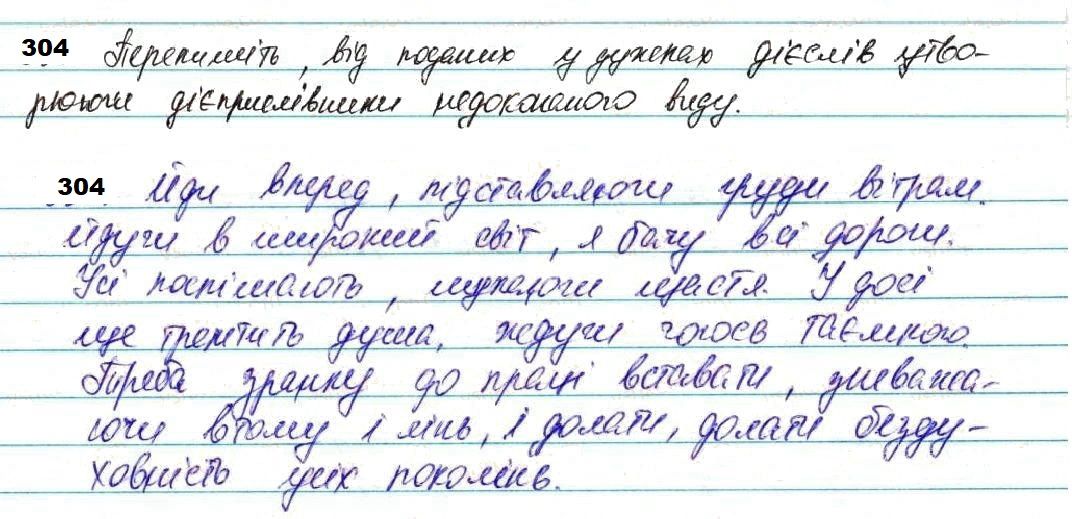 304 Перепишіть, від поданих у дужках дієслів утво-
рюючи дієприслівники недоконаного виду.
304 Йди вперед, підставляючи груди вітрам.
Йдучи в широкий світ, я бачу всі дороги.
Усі поспішають, шукаючи щастя. У досі
ще тремтить душа, ждучи голосів таємного.
Треба зранку до праці вставати, зневажа-
ючи втому і лінь, і долати, долати безду-
ховність усіх поколінь.